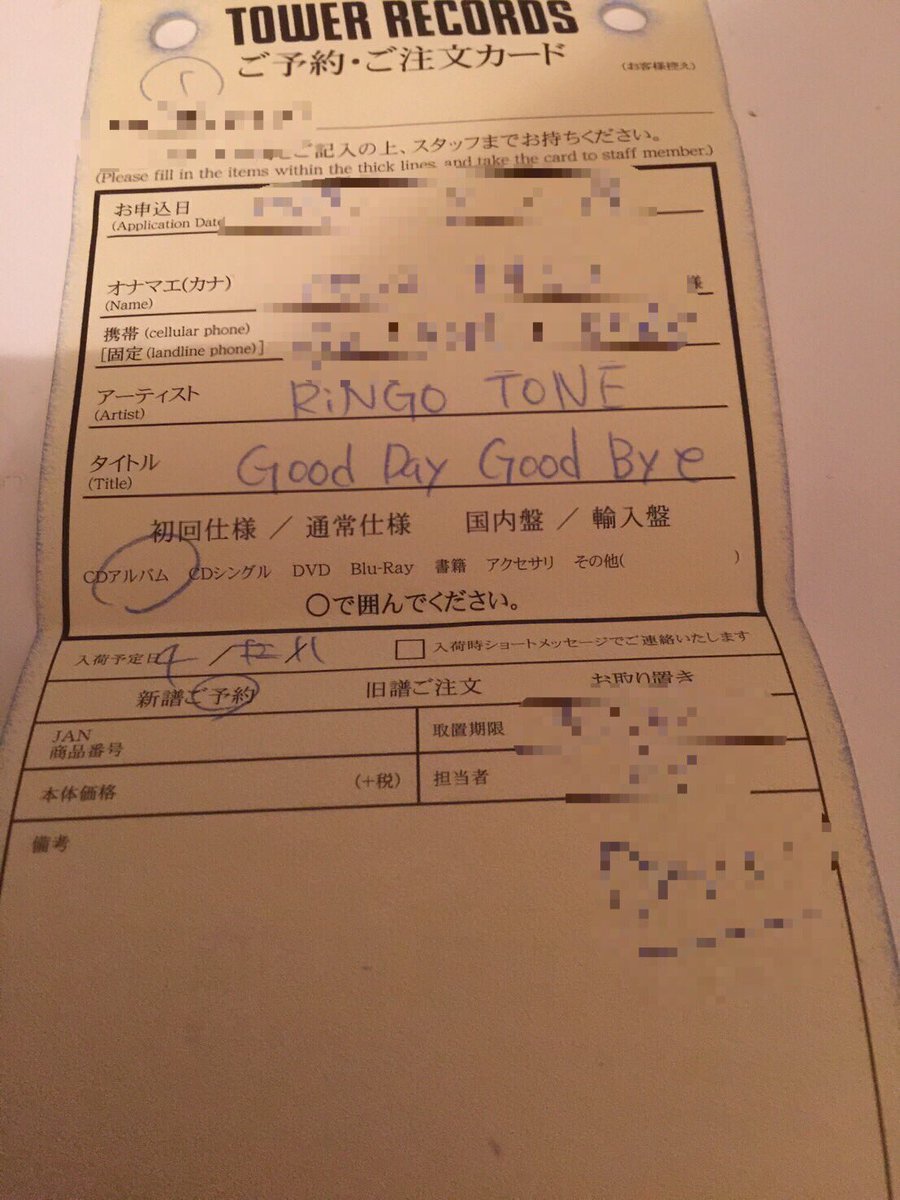 TOWER RECORDS
ご予約・ご注文カード
(お客様控え)
ご記入の上、スタッフまでお持ちください。
(Please fill in the items within the thick lines, and take the card to staff member.)
お申込日
(Application Date
オナマエ(カナ)
様
(Name)
携帯 (cellular phone)
[固定 (landline phone)]
アーティスト RiNGO TONE
(Artist)
タイトル Good Day Good Bye
(Title)
初回仕様 / 通常仕様 国内盤 / 輸入盤
CDアルバム CDシングル DVD Blu-Ray 書籍 アクセサリ その他( )
○で囲んでください。
入荷予定日 4 / □ 入荷時ショートメッセージでご連絡いたします
新譜ご予約 旧譜ご注文 お取り置き
JAN
商品番号
取置期限
本体価格 (+税) 担当者
備考